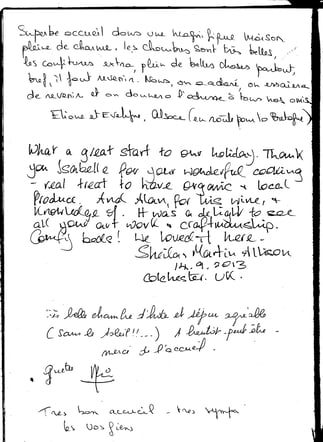 Superbe accueil dans une magnifique maison
pleine de charme. les chambres sont très belles,
les confitures extra, plein de belles choses partout,
bref, il faut revenir. Nous, on a adoré, on essaiera
de revenir et on donnera l'adresse à tous nos amis.
Eliane et Evelyne, Alsace (en route pour la Bretagne)
What a great start to our holiday. Thank
you Isabelle for your wonderful cooking
- real treat to have organic + local
Produce. And Alan, for his wine, +
Knowledge of. It was a delight to see
all your art work & craftmanship.
Comfy beds! We loved it here.
Sheila, Martin Allison
14.9.2013
Colchester. UK.
Très belle chambre d'hôte et séjour agréable
(Sans le soleil!!...) A bientôt peut être -
merci de l'accueil.
Très bon accueil - très sympa
les vosgiens